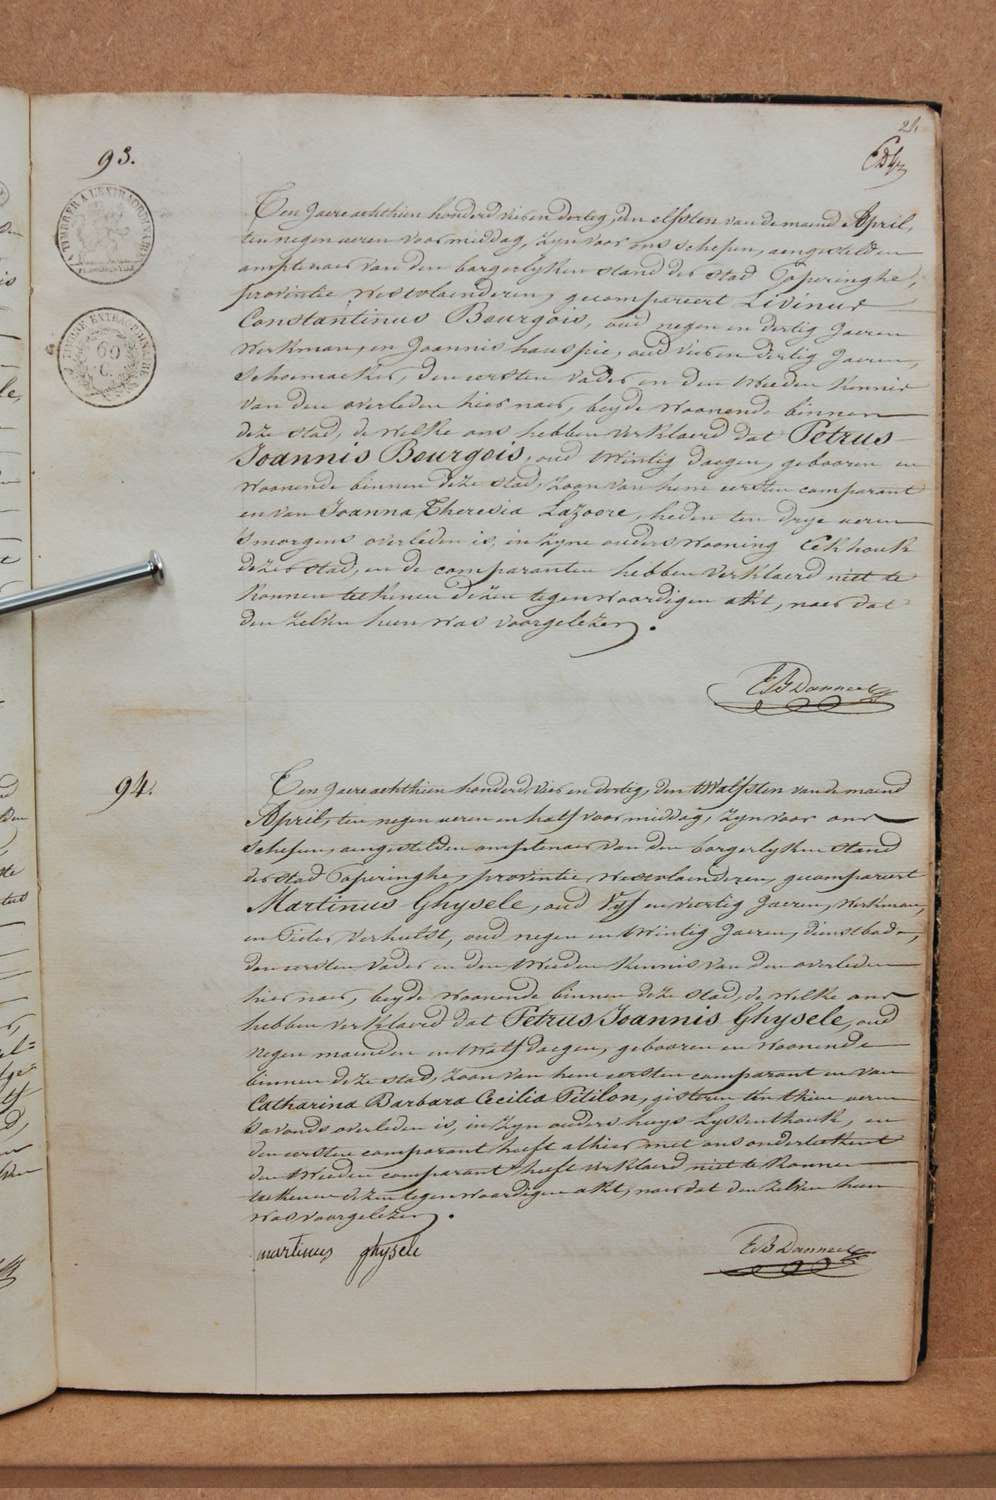 21.
93.
TIMBRER A L'EXTRAORDINAIRE
EXTRAORDINAIRE
60
C.
Ten Jaere achthien honderd vier en dertig, den elfsten van de maend April,
ten negen ueren voormiddag, zyn voor ons schepen, aengestelden
amptenaer van den borgerlyken stand der stad Poperinghe,
provintie Westvlaenderen, gecompareert Livinus
Constantinus Bourgois, oud negen en dertig Jaeren
Werkman, en Joannis hauspie, oud vier en dertig Jaeren,
Schoemaeker, den eersten vader en den tweeden Kennis
van den overleden hier naer, beyde woonende binnen
deze stad, de welke ons hebben verklaerd dat Petrus
Joannis Bourgois, oud twintig daegen, gebooren en
woonende binnen deze stad, zoon van hem eersten comparant
en van Joanna Theresia Lazoore, heden ten drye ueren
's morgens overleden is, in zyne ouders wooning Eekhouk
dezer stad, en de comparanten hebben verklaerd niet te
konnen teekenen dezen tegenwoordigen akt, naer dat
den zelven hun was voorgelezen.
E B Danneel
94.
Ten Jaere achthien honderd vier en dertig, den twalfsten van de maend
April, ten negen ueren en half voormiddag, zyn voor ons
schepen, aengestelden amptenaer van den borgerlyken stand
der stad Poperinghe, provintie Westvlaenderen, gecompareert
Martinus Ghysele, oud vyf en veertig Jaeren, Werkman,
en Pieter Verhulst, oud negen en twintig Jaeren, dienstbode,
den eersten vader en den tweeden Kennis van den overleden
hier naer, beyde woonende binnen deze stad, de welke ons
hebben verklaerd dat Petrus Joannis Ghysele, oud
negen maenden en twalf daegen, gebooren en woonende
binnen deze stad, zoon van hem eersten comparant en van
Catharina Barbara Cecilia Titilon, gisteren ten thien ueren
's avonds overleden is, in zyn ouders huys Lyssenthouk, en
den eersten comparant heeft alhier met ons onderteekent
den tweeden comparant heeft verklaerd niet te konnen
teekenen dezen tegenwoordigen akt, naer dat den zelven hun
was voorgelezen.
martinus ghysele
E B Danneel